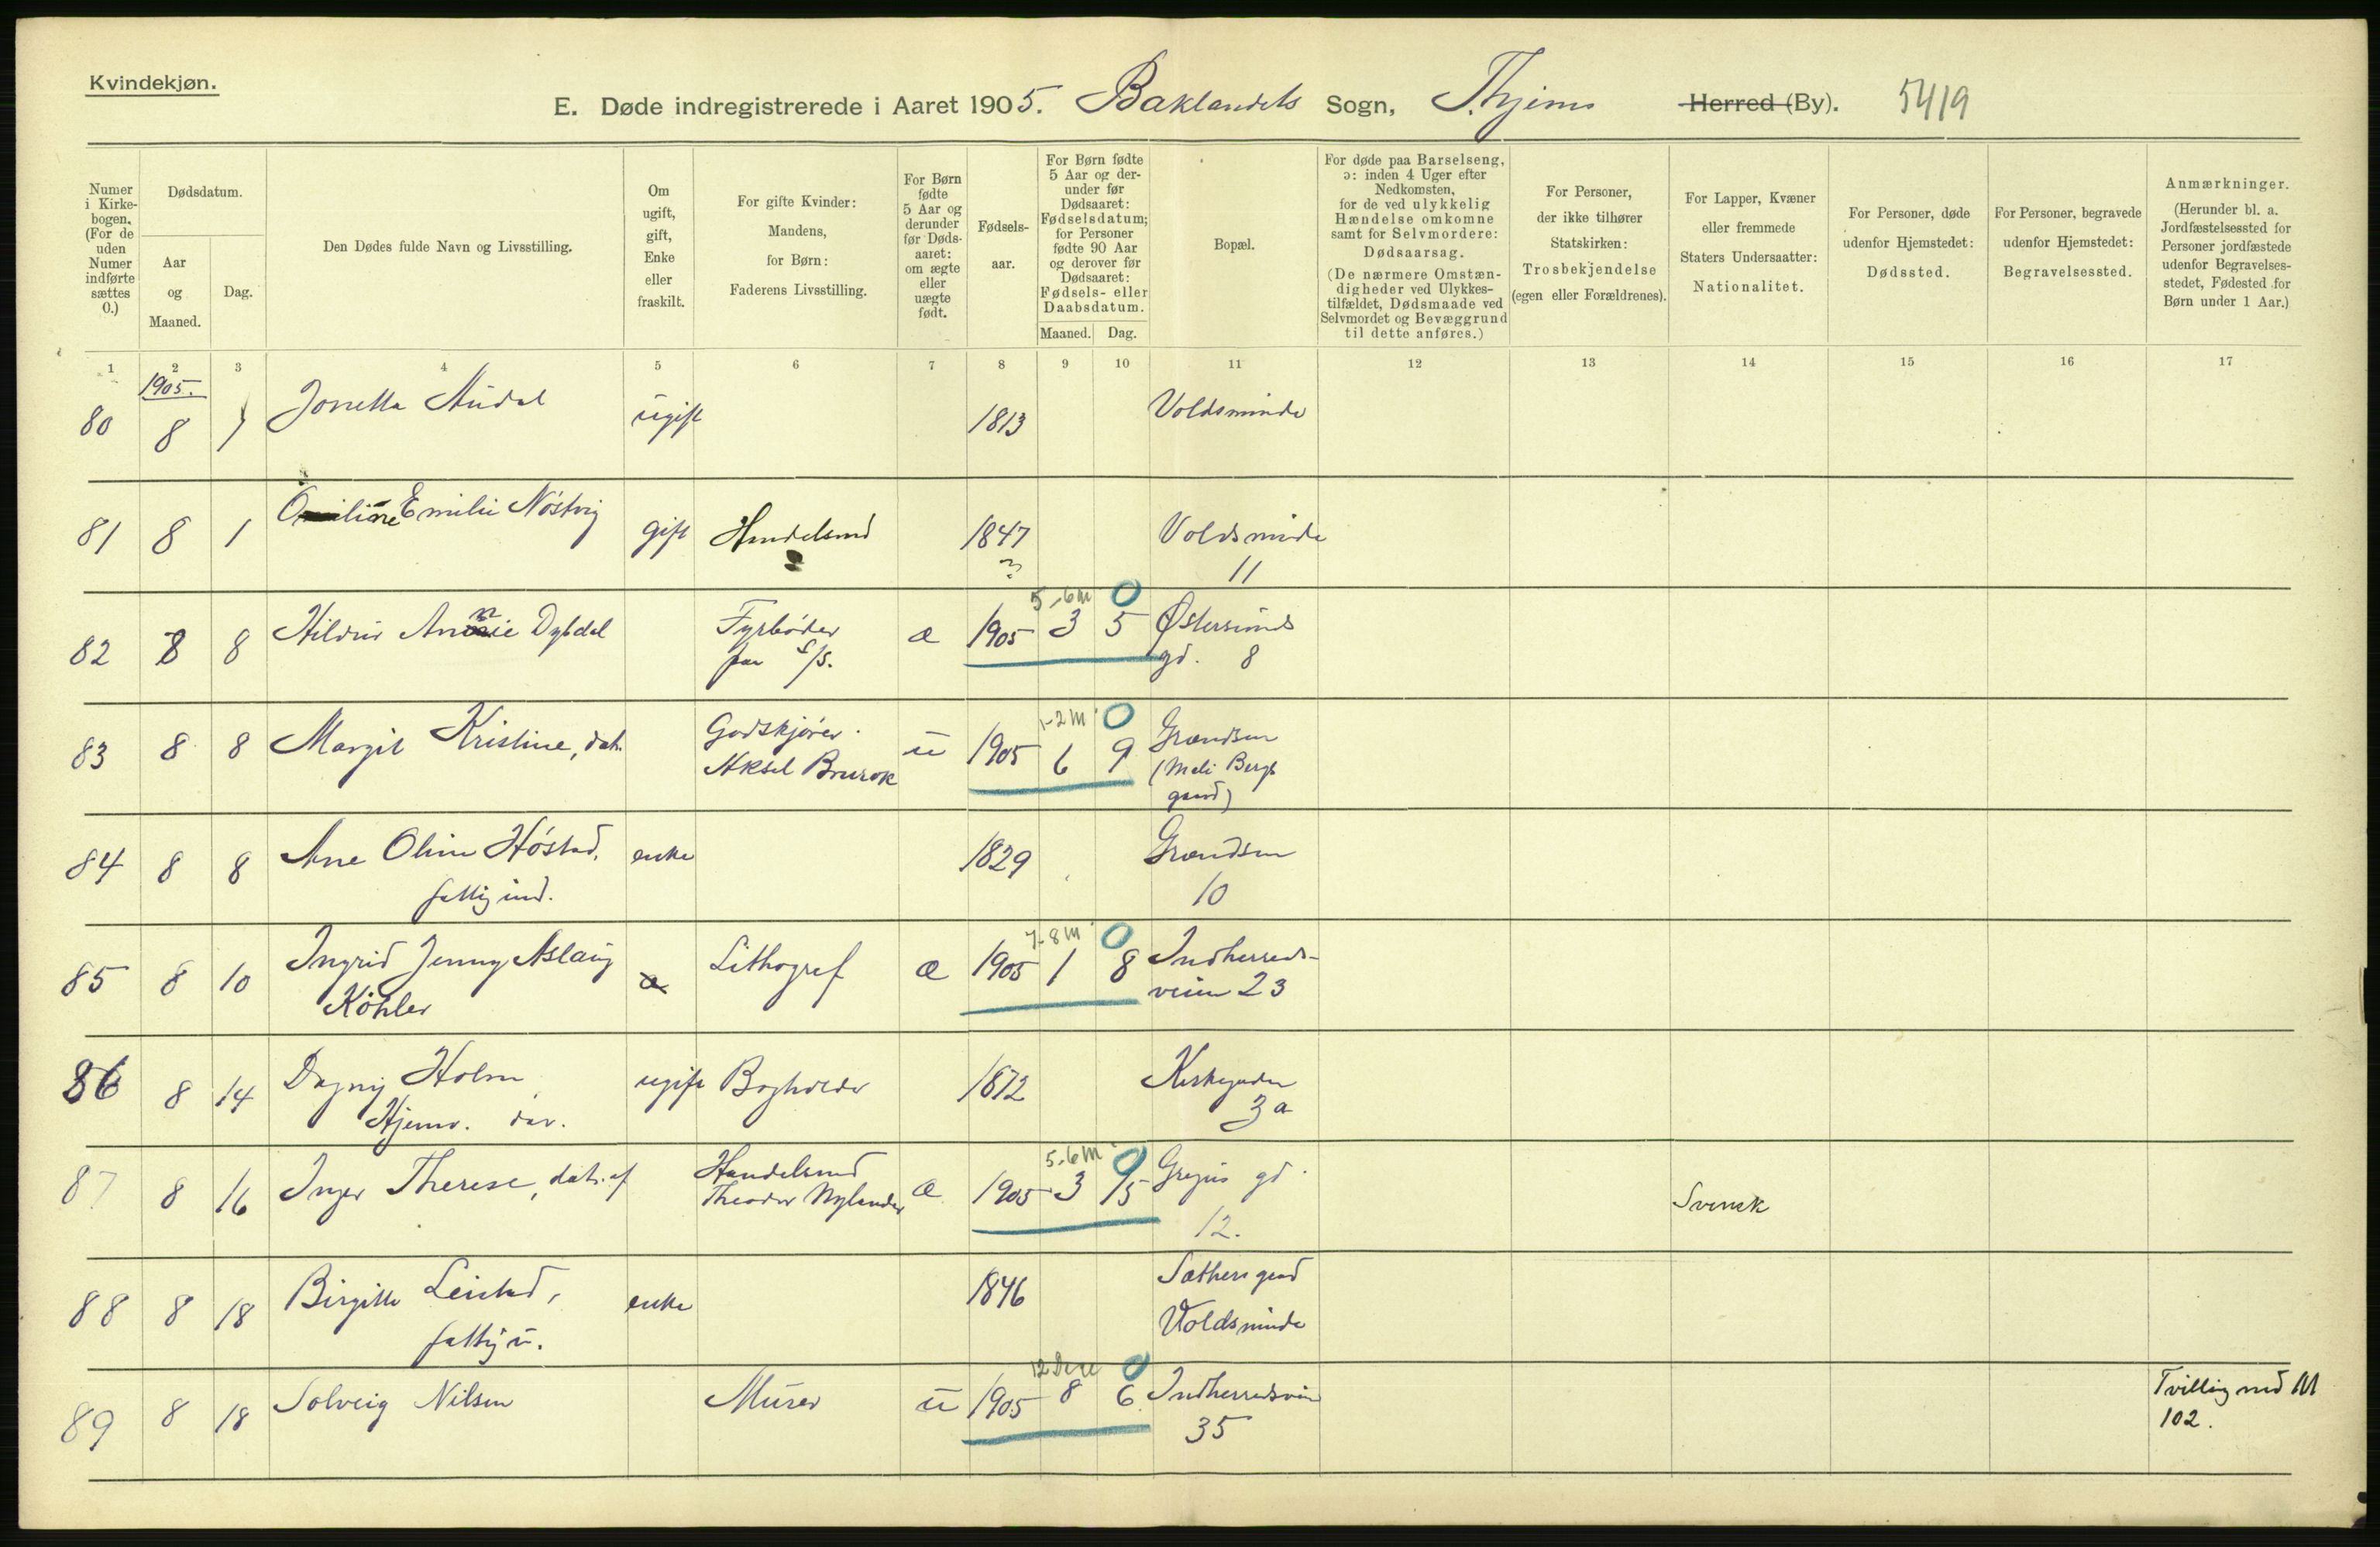 Kvindekjøn.
E. Døde indregistrerede i Aaret 1905. Baklandets Sogn, T.hjems Herred (By). 5419
Numer i Kirkebogen. (For de uden Numer indførte sættes 0.)
Dødsdatum.
Aar og Maaned.
Dag.
Den Dødes fulde Navn og Livsstilling.
Om ugift, gift, Enke eller fraskilt.
For gifte Kvinder: Mandens, for Børn: Faderens Livsstilling.
For Børn fødte 5 Aar og derunder før Dødsaaret: om ægte eller uægte født.
Fødselsaar.
For Børn fødte 5 Aar og derunder før Dødsaaret: Fødselsdatum; for Personer fødte 90 Aar og derover før Dødsaaret: Fødsels- eller Daabsdatum.
Maaned. Dag.
Bopæl.
For døde paa Barselseng, ɔ: inden 4 Uger efter Nedkomsten, for de ved ulykkelig Hændelse omkomne samt for Selvmordere: Dødsaarsag.
(De nærmere Omstændigheder ved Ulykkestilfældet, Dødsmaade ved Selvmordet og Bevæggrund til dette anføres.)
For Personer, der ikke tilhører Statskirken: Trosbekjendelse (egen eller Forældrenes).
For Lapper, Kvæner eller fremmede Staters Undersaatter: Nationalitet.
For Personer, døde udenfor Hjemstedet: Dødssted.
For Personer, begravede udenfor Hjemstedet: Begravelsessted.
Anmærkninger.
(Herunder bl. a. Jordfæstelsessted for Personer jordfæstede udenfor Begravelsesstedet, Fødested for Børn under 1 Aar.)
1 2 3 4 5 6 7 8 9 10 11 12 13 14 15 16 17
1905.
80 8 1 Jonetta Audal ugift 1813 Voldsminde
81 8 1 Emilie Nøstvig gift Handelsmd 1847 Voldsminde
?
11
5-6 M 0
82 8 8 Dybdal Fyrbøder æ 1905 3 5 Østersunds
paa S/S. gd. 8
1-2 M 0
83 8 8 Margit Kristine, datr. Godskjører u 1905 6 9 Grændsen
Aksel Brurok (Meli Bergs
gaard)
84 8 8 Ane Oline Høstad, enke 1829 Grændsen
fattigund. 10
7-8 M 0
85 8 10 Ingrid Jenny Aslaug æ Lithograf æ 1905 1 8 Indherreds-
Köhler veien 23
86 8 14 Dagny Holm ugift Bogholder 1872 Kirkegaden
Hjemv. dar. 3 a
5-6 M 0
87 8 16 Inger Therese, datr. af Handelsmd æ 1905 3 15 Gregus gd.
Theodor Nylander 12. Svensk
88 8 18 Birgitte Leistad, enke 1846 Sæthers gaard
fattigu. Voldsminde
12 Dage 0
89 8 18 Solveig Nilsen Murer u 1905 8 6 Indherredsveien Tvilling med M
35 102.